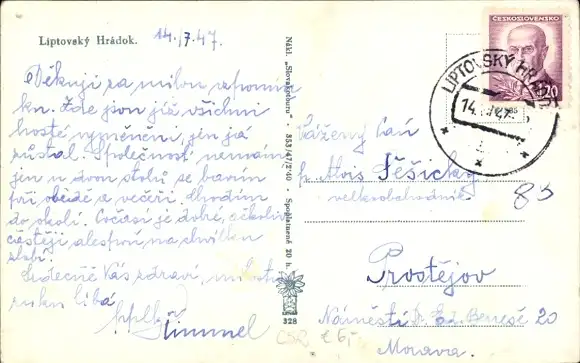 Liptovský Hrádok. 14./7.47.
Děkuji za milou
kn. Zde jsou již všichni
hosté vyměněni, jen já
zůstal. Společnost nemám,
jen u dvou stolů se bavím
při obědě a večeři. Chodím
do okolí. Počasí je dobré, ačkoliv
častěji alespoň na chvilku
Srdečně Vás zdraví,
ruku líbá
Himmel
Nákl. „Slovakotour" • 353/47/2'40 • Spoplatnené 20 h.
328
ČESKOSLOVENSKO
1'20
LIPTOVSKÝ HRÁDOK
14.
Vážený Pan
p. Alois Těšický
velkoobchodník
83
Prostějov
Náměstí Dr. Ed. Beneše 20
Morava.
ČSR